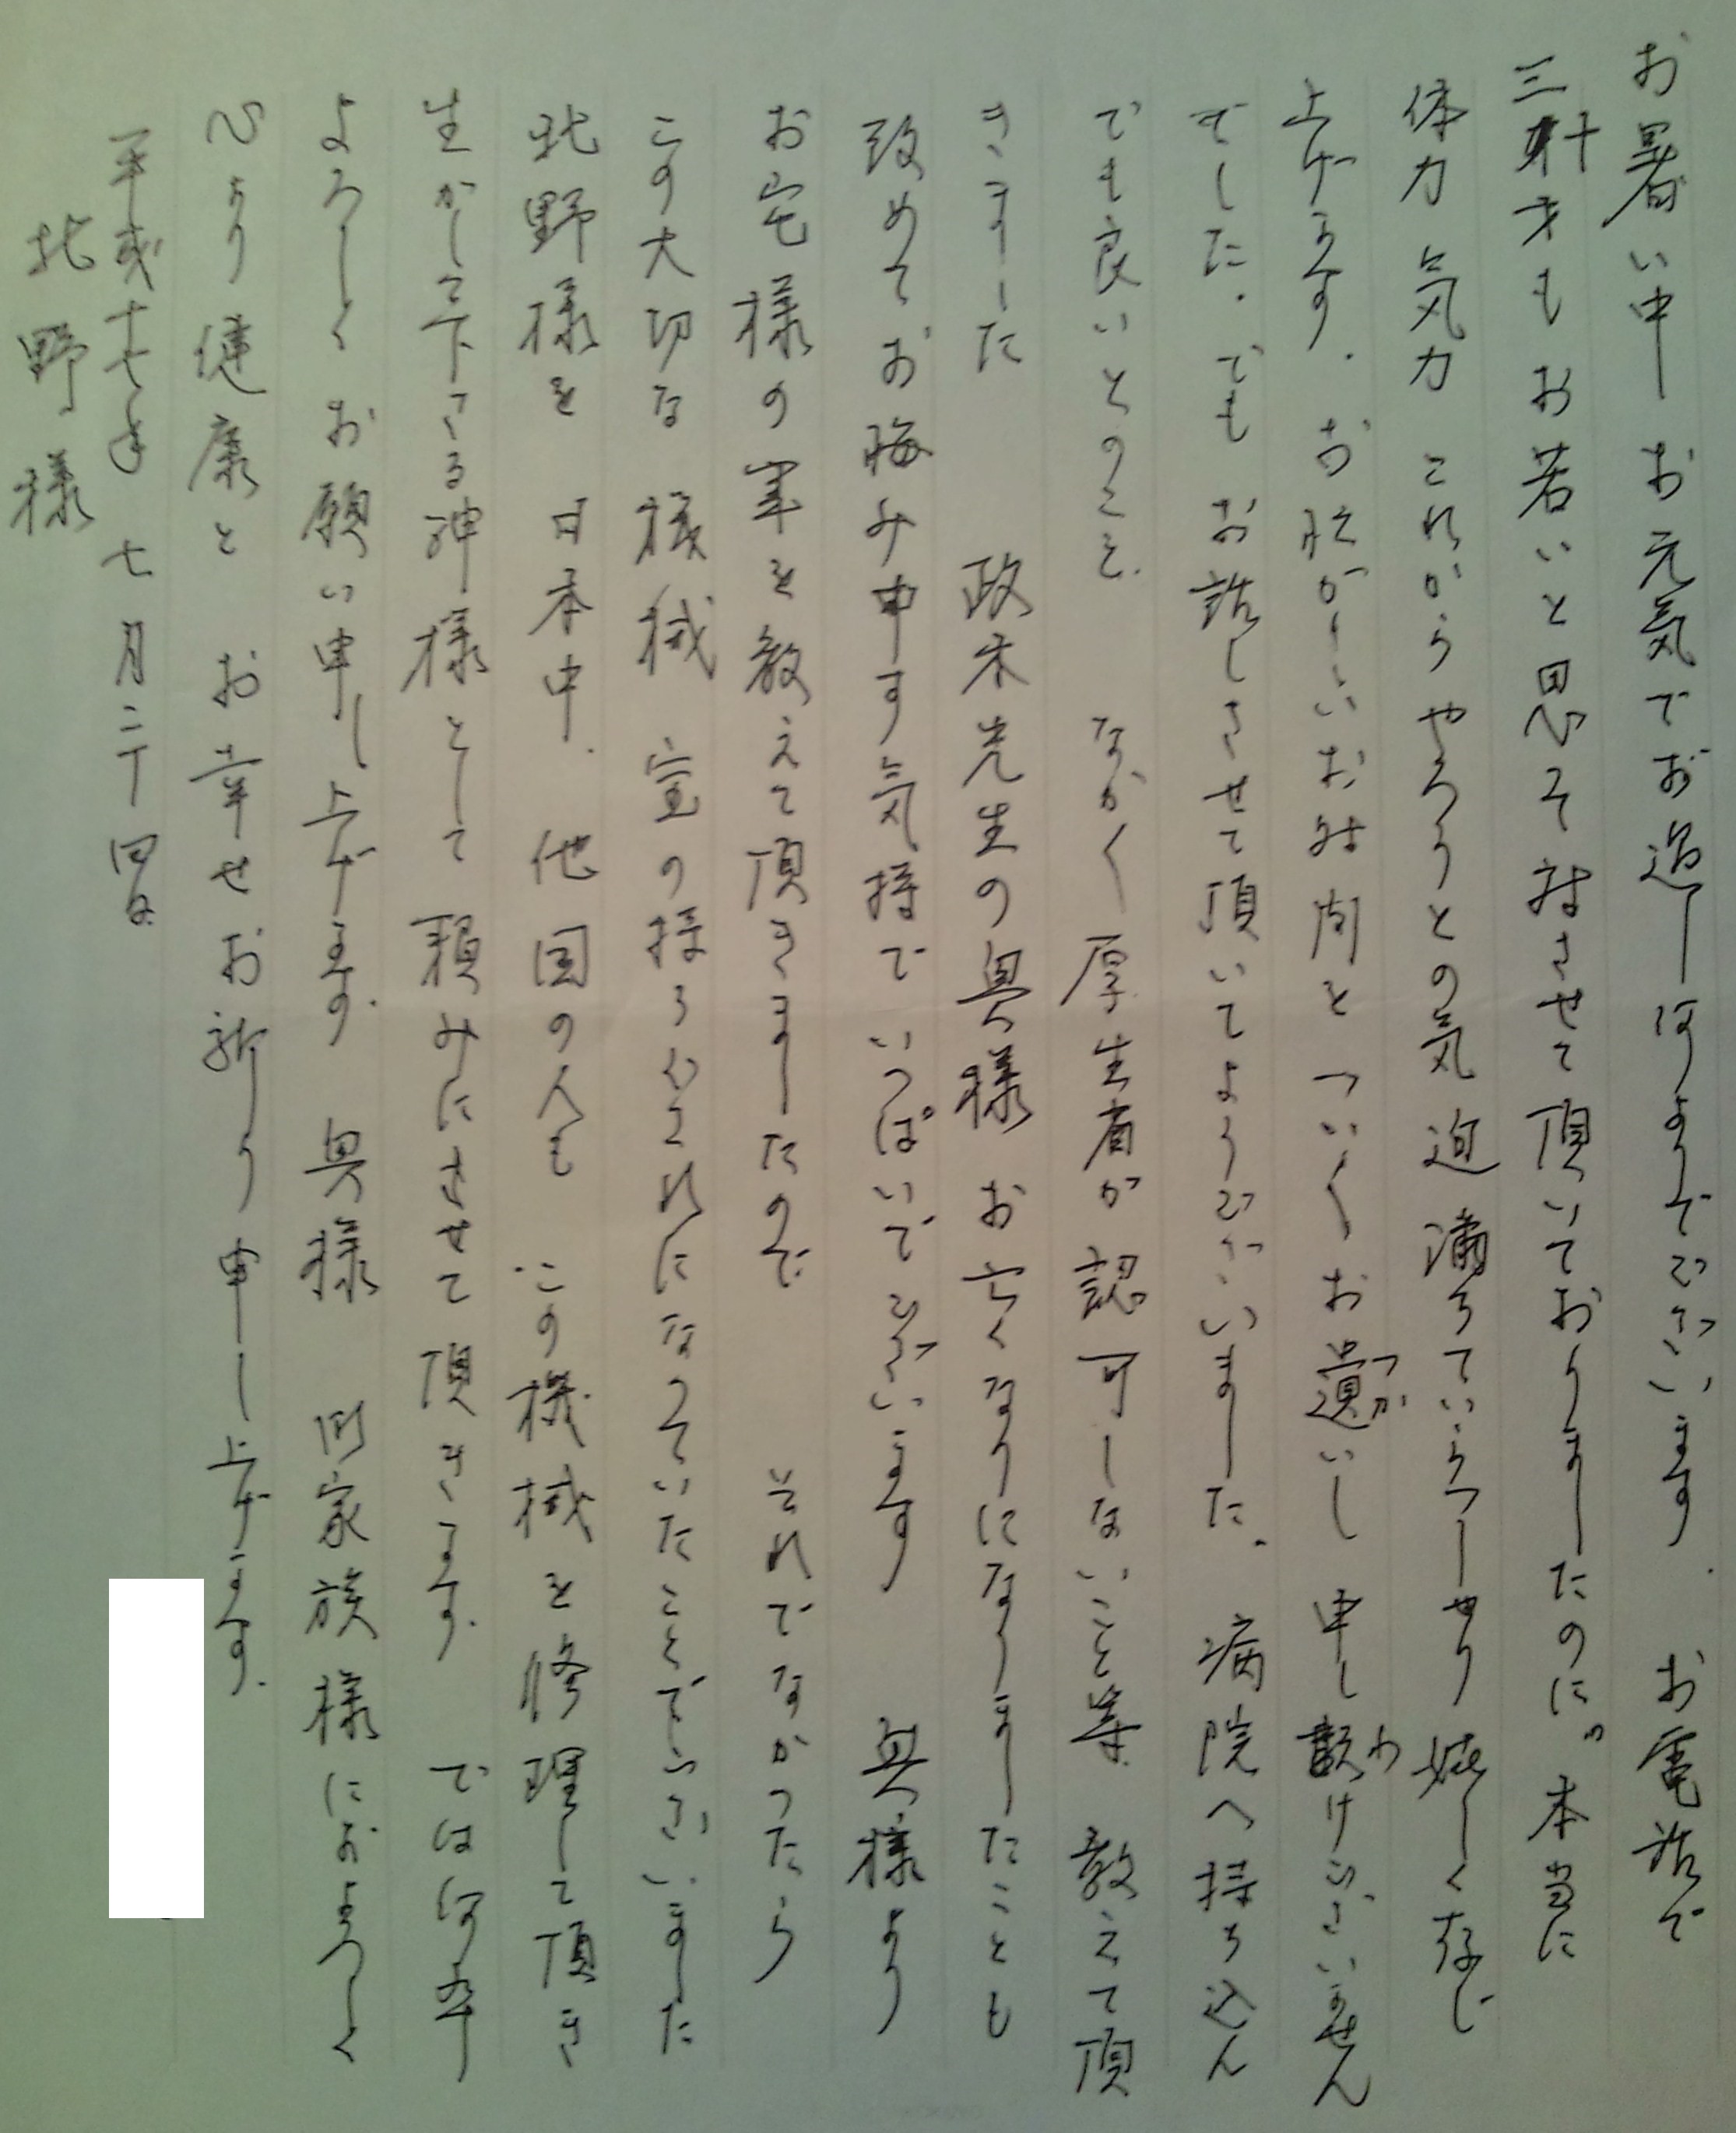 お暑い中 お元気でお過し何よりでございます。 お電話で
三十才もお若いと思そ せて頂いておりましたのに" 本当に
体力 気力 これからやろうとの気迫満ちていらっしゃり 嬉しく存じ
上げます。 お忙がしいお時間を ついくお遣いし 申し訳けございません
でした。でも お話しさせて頂いてようございました。 病院へ持ち込ん
でも良いとのこと。 なかく厚生省が認可しないこと等 教えて頂
きました 政木先生の奥様 お亡くなりになりましたことも
改めてお悔み申す気持で いっぱいでございます 奥様より
お宅様の 事を教えて頂きましたので それでなかったら
この大切な 機械 宝の持ちぐされになっていたことでございました
北野様を 日本中、 他国の人も この機械を修理して頂き
生かして下さる神様として 頼みにさせて頂きます。 では何卒
よろしくお願い申し上げます。 奥様 御家族様におよろしく
心より健康と お幸せお祈り申し上げます。
平成十七年 七月二十四日
北野様